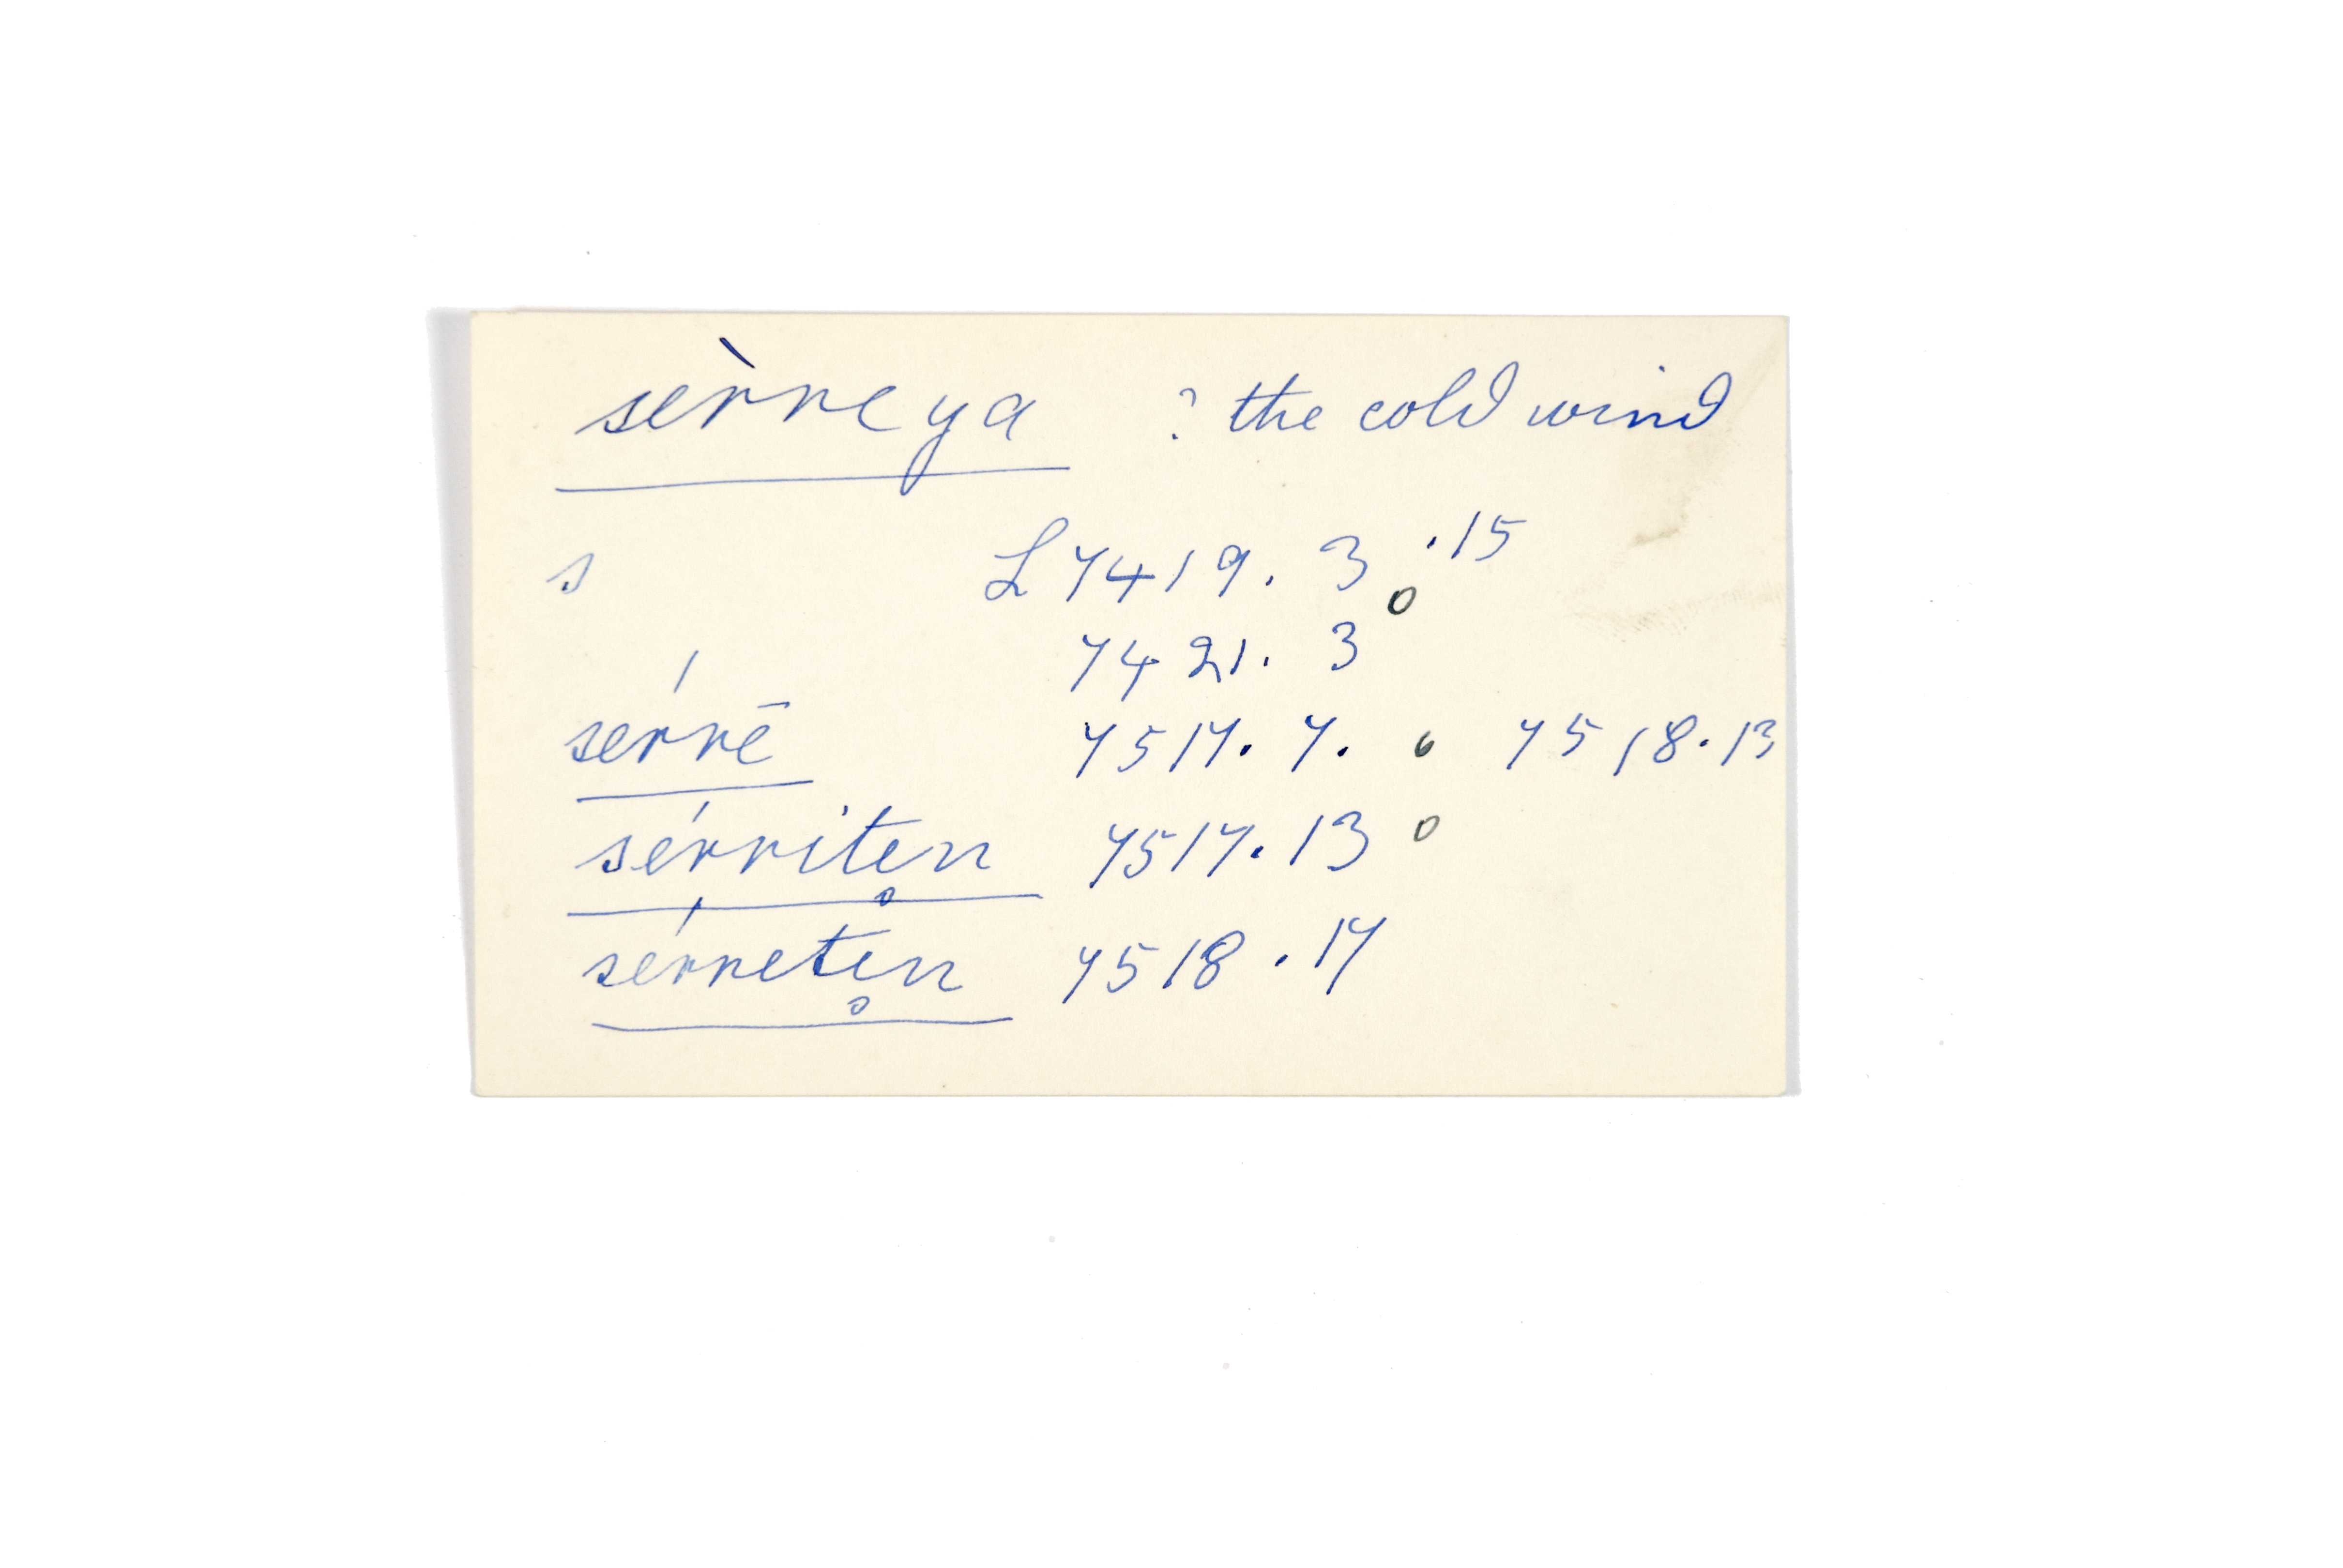 sèrreya ? the cold wind
s L 7419. 3 o .15
7421. 3
sérrē 7517. 7. o 7518.13
sérrite̥n 7517.13 o
sérrete̥n 7518.17